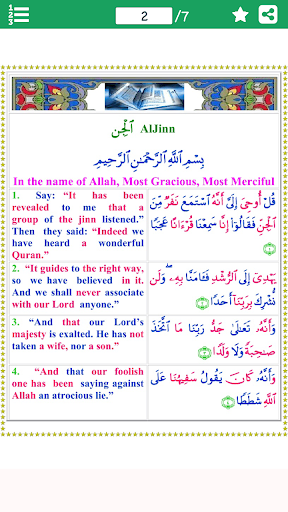 1
2
3
2 /7
ٱلْجِن AlJinn
بِسْمِ ٱللَّهِ ٱلرَّحْمَٰنِ ٱلرَّحِيمِ
In the name of Allah, Most Gracious, Most Merciful
1. Say: “It has been
revealed to me that a
group of the jinn listened.”
Then they said: “Indeed we
have heard a wonderful
Quran.”
قُلْ أُوحِىَ إِلَىَّ أَنَّهُ ٱسْتَمَعَ نَفَرٌ مِّنَ
ٱلْجِنِّ فَقَالُوٓا۟ إِنَّا سَمِعْنَا قُرْءَانًا عَجَبًا
﴿١﴾
2. “It guides to the right way,
so we have believed in it.
And we shall never associate
with our Lord anyone.”
يَهْدِىٓ إِلَى ٱلرُّشْدِ فَـَٔامَنَّا بِهِۦ ۖ وَلَن
نُّشْرِكَ بِرَبِّنَآ أَحَدًا ﴿٢﴾
3. “And that our Lord’s
majesty is exalted. He has not
taken a wife, nor a son.”
وَأَنَّهُۥ تَعَٰلَىٰ جَدُّ رَبِّنَا مَا ٱتَّخَذَ
صَٰحِبَةً وَلَا وَلَدًا ﴿٣﴾
4. “And that our foolish
one has been saying against
Allah an atrocious lie.”
وَأَنَّهُۥ كَانَ يَقُولُ سَفِيهُنَا عَلَى
ٱللَّهِ شَطَطًا ﴿٤﴾